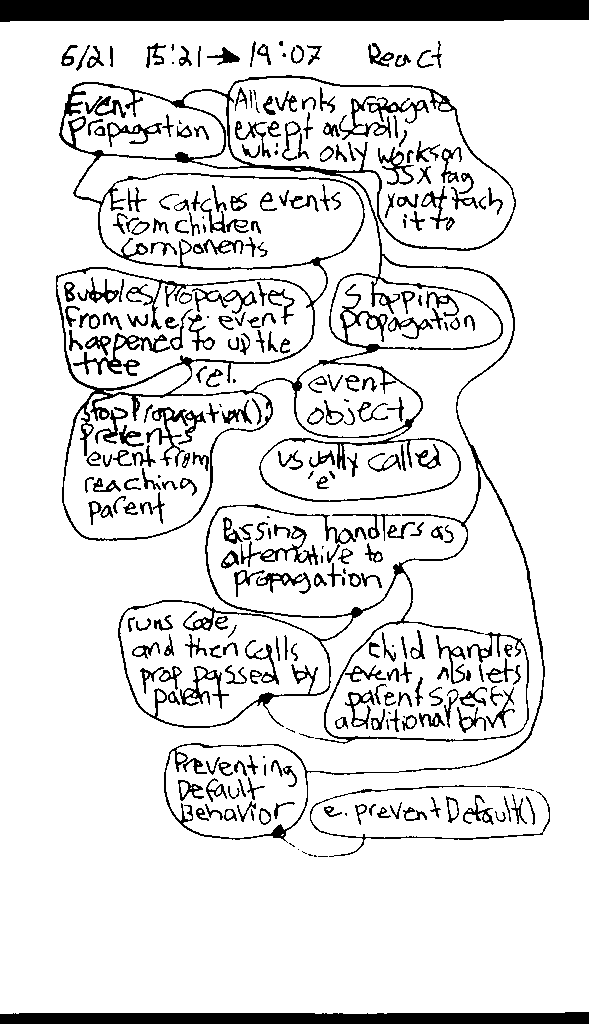 6/21 15:21→19:07 React
Event
Propagation
All events propagate
except onScroll,
which only works on
JSX tag
you attach
it to
EH catches events
from children
components
Bubbles/Propagates
from where event
happened to up the
tree
Stopping
propagation
rel.
event
object
stopPropagation();
Prevents
event from
reaching
parent
usually called
'e'
Passing handlers as
alternative to
propagation
runs code,
and then calls
prop passed by
parent
child handles
event, also lets
parent specify
additional bhvr
Preventing
Default
Behavior
e.preventDefault()